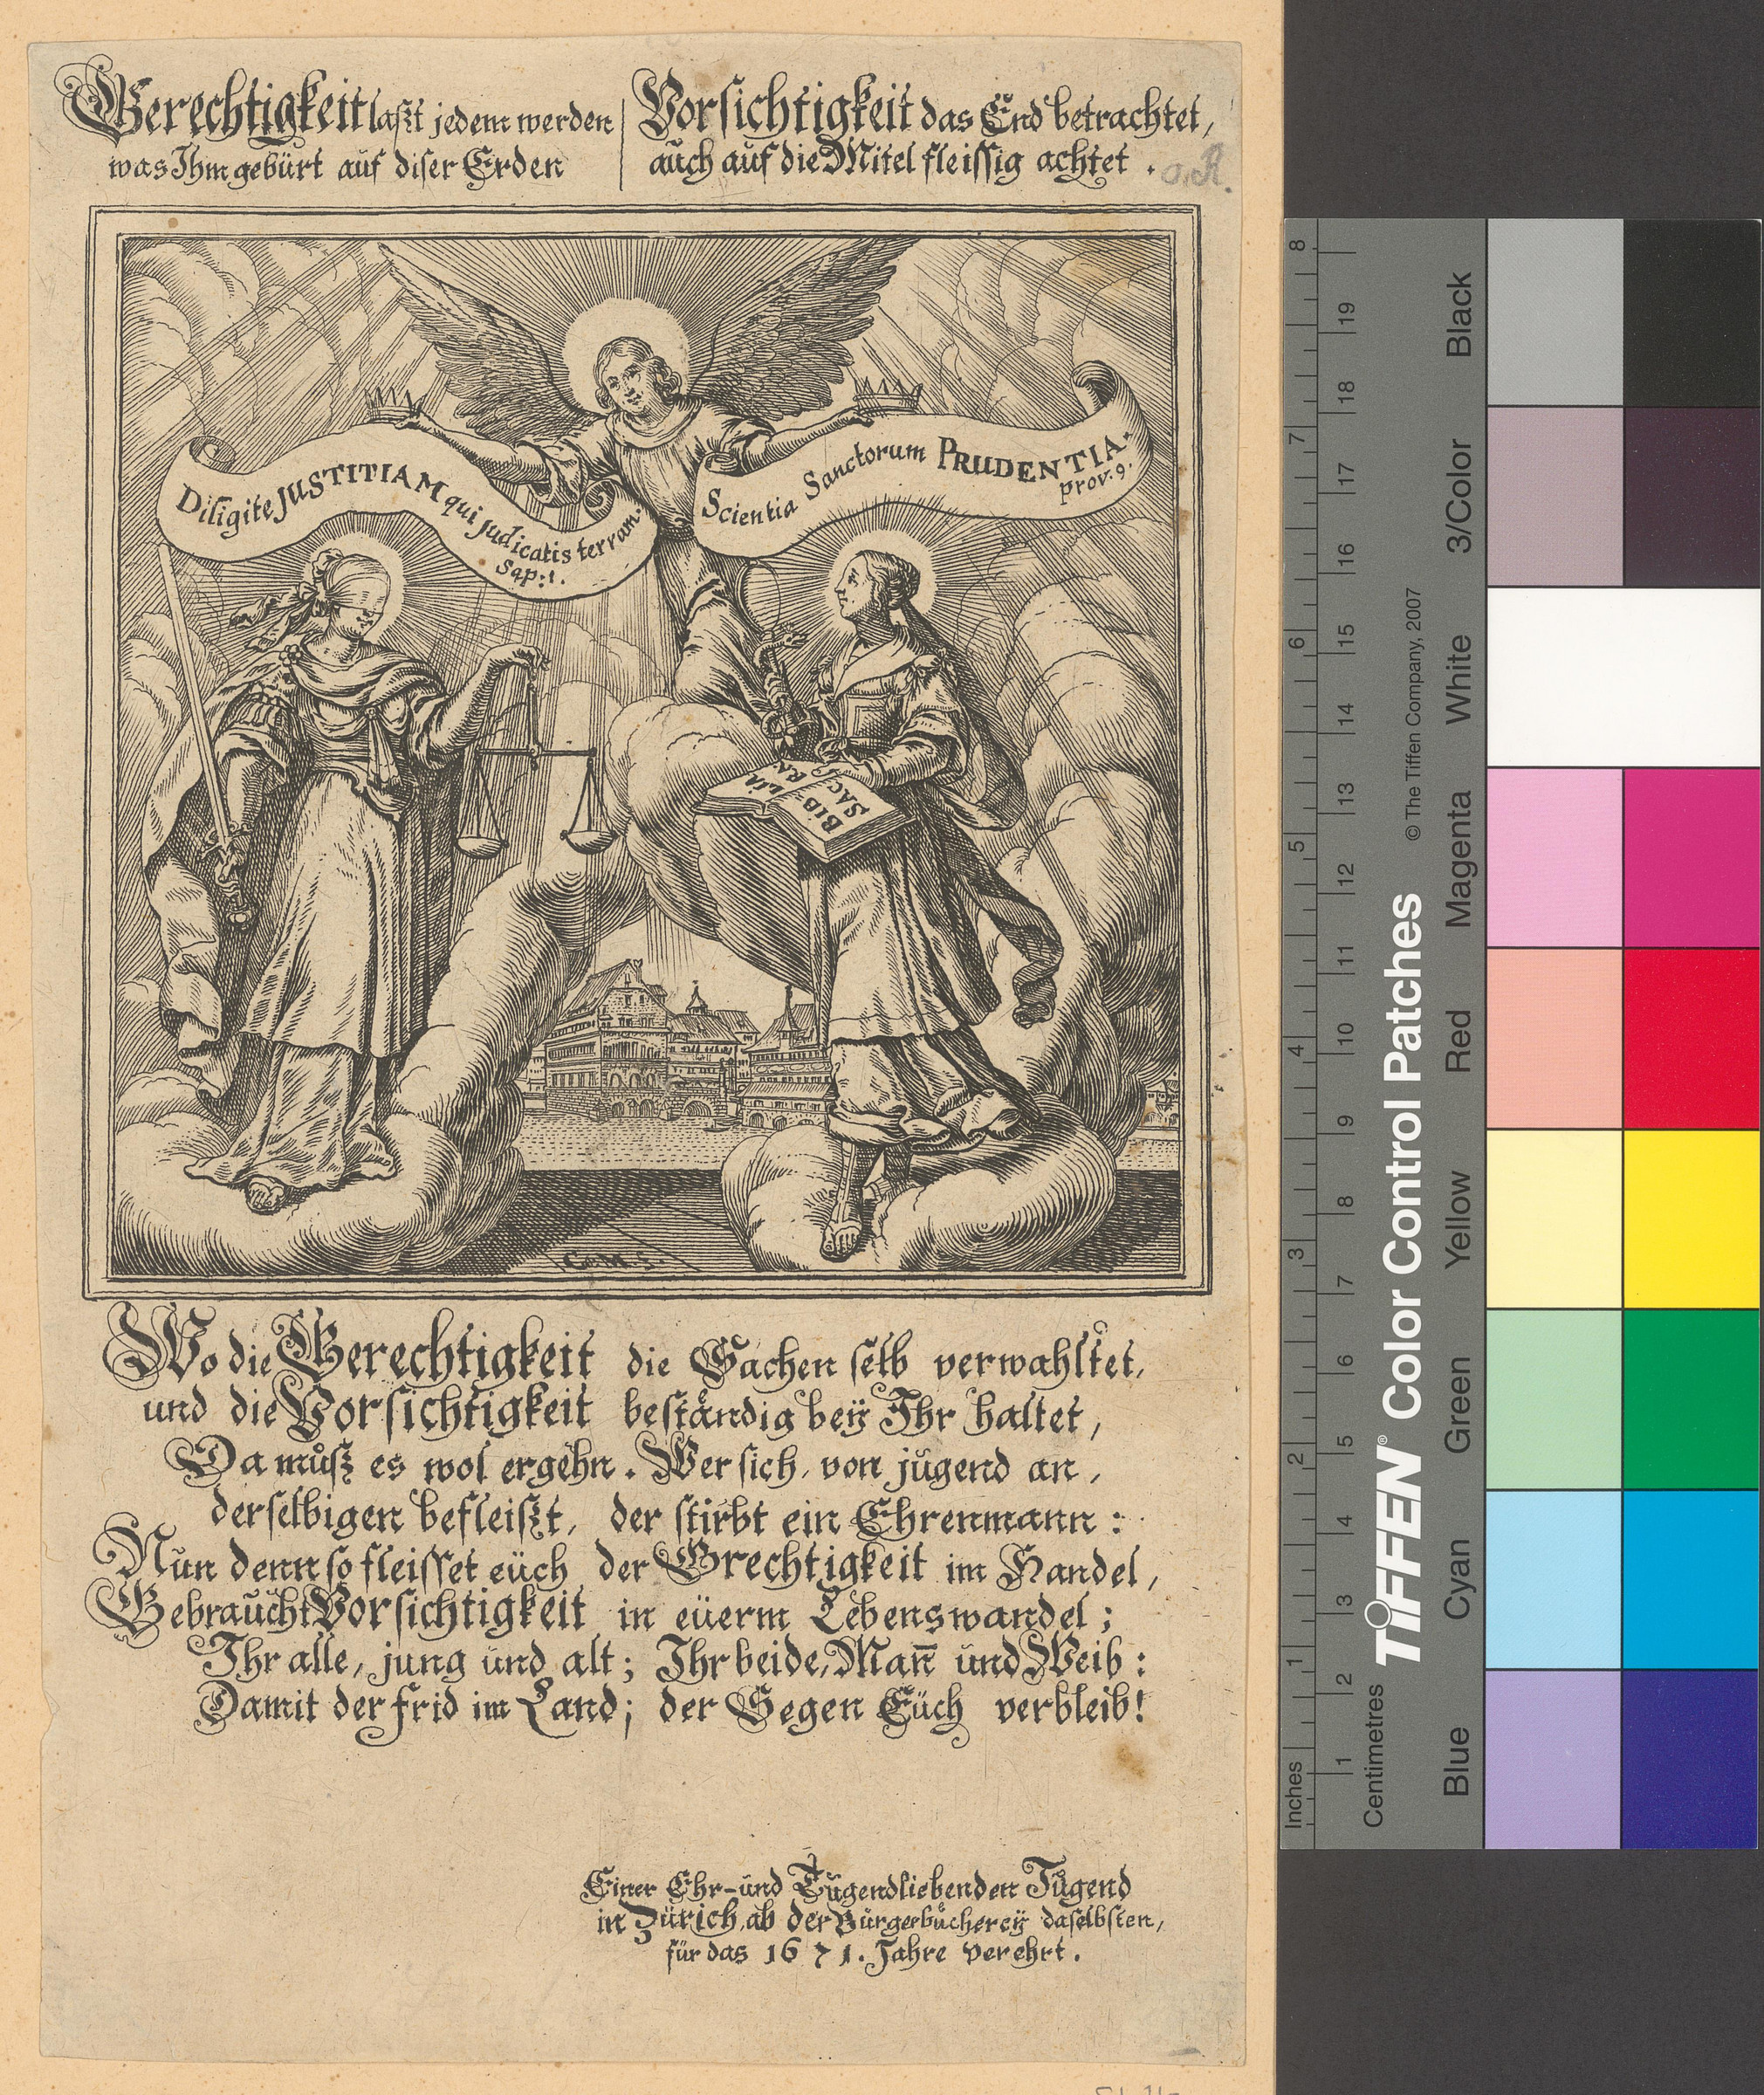 Gerechtigkeit laßt jedem werden
was Ihm gebürt auf diser Erden
Vorsichtigkeit das End betrachtet,
auch auf die Mitel fleissig achtet.
Diligite JUSTITIAM qui judicatis terram.
Sap: 1.
Scientia Sanctorum PRUDENTIA.
prov. 9.
BIBLIA
SACRA
C. M. S.
Wo die Gerechtigkeit die Sachen selb verwahltet,
und die Vorsichtigkeit beständig beÿ Ihr haltet,
Da můß es wol ergehn. Wer sich, von jugend an,
derselbigen befleißt, der stirbt ein Ehrenmann:
Nun denn so fleisset eüch der Grechtigkeit im Handel,
Gebraucht Vorsichtigkeit in eüerm Lebenswandel;
Ihr alle, jung und alt; Ihr beide, Man̄ und Weib:
Damit der frid im Land; der Segen Eüch verbleib!
Einer Ehr-und Tugendliebenden Jugend
in Zürich, ab der Bürgerbücherey daselbsten,
für das 1671. Jahre verehrt.
Inches
1
2
3
4
5
6
7
8
Centimetres
1
2
3
4
5
6
7
8
9
10
11
12
13
14
15
16
17
18
19
TIFFEN® Color Control Patches
© The Tiffen Company, 2007
Blue
Cyan
Green
Yellow
Red
Magenta
White
3/Color
Black